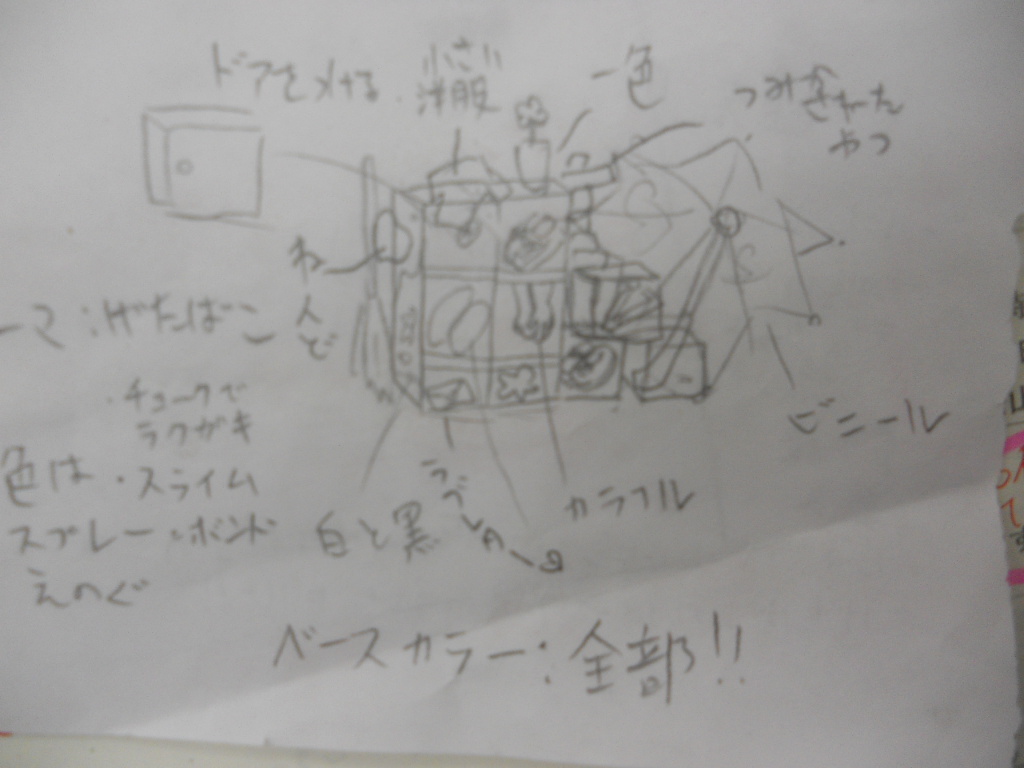 ドアをメける
小さい
洋服
一色
つみかさねた
やつ
ーマ:げたばこ
人
で
・チョークで
ラクガキ
色は・スライム
スプレー・ボンド
えのぐ
白と黒
カラフル
ビニール
ベースカラー:全部!!